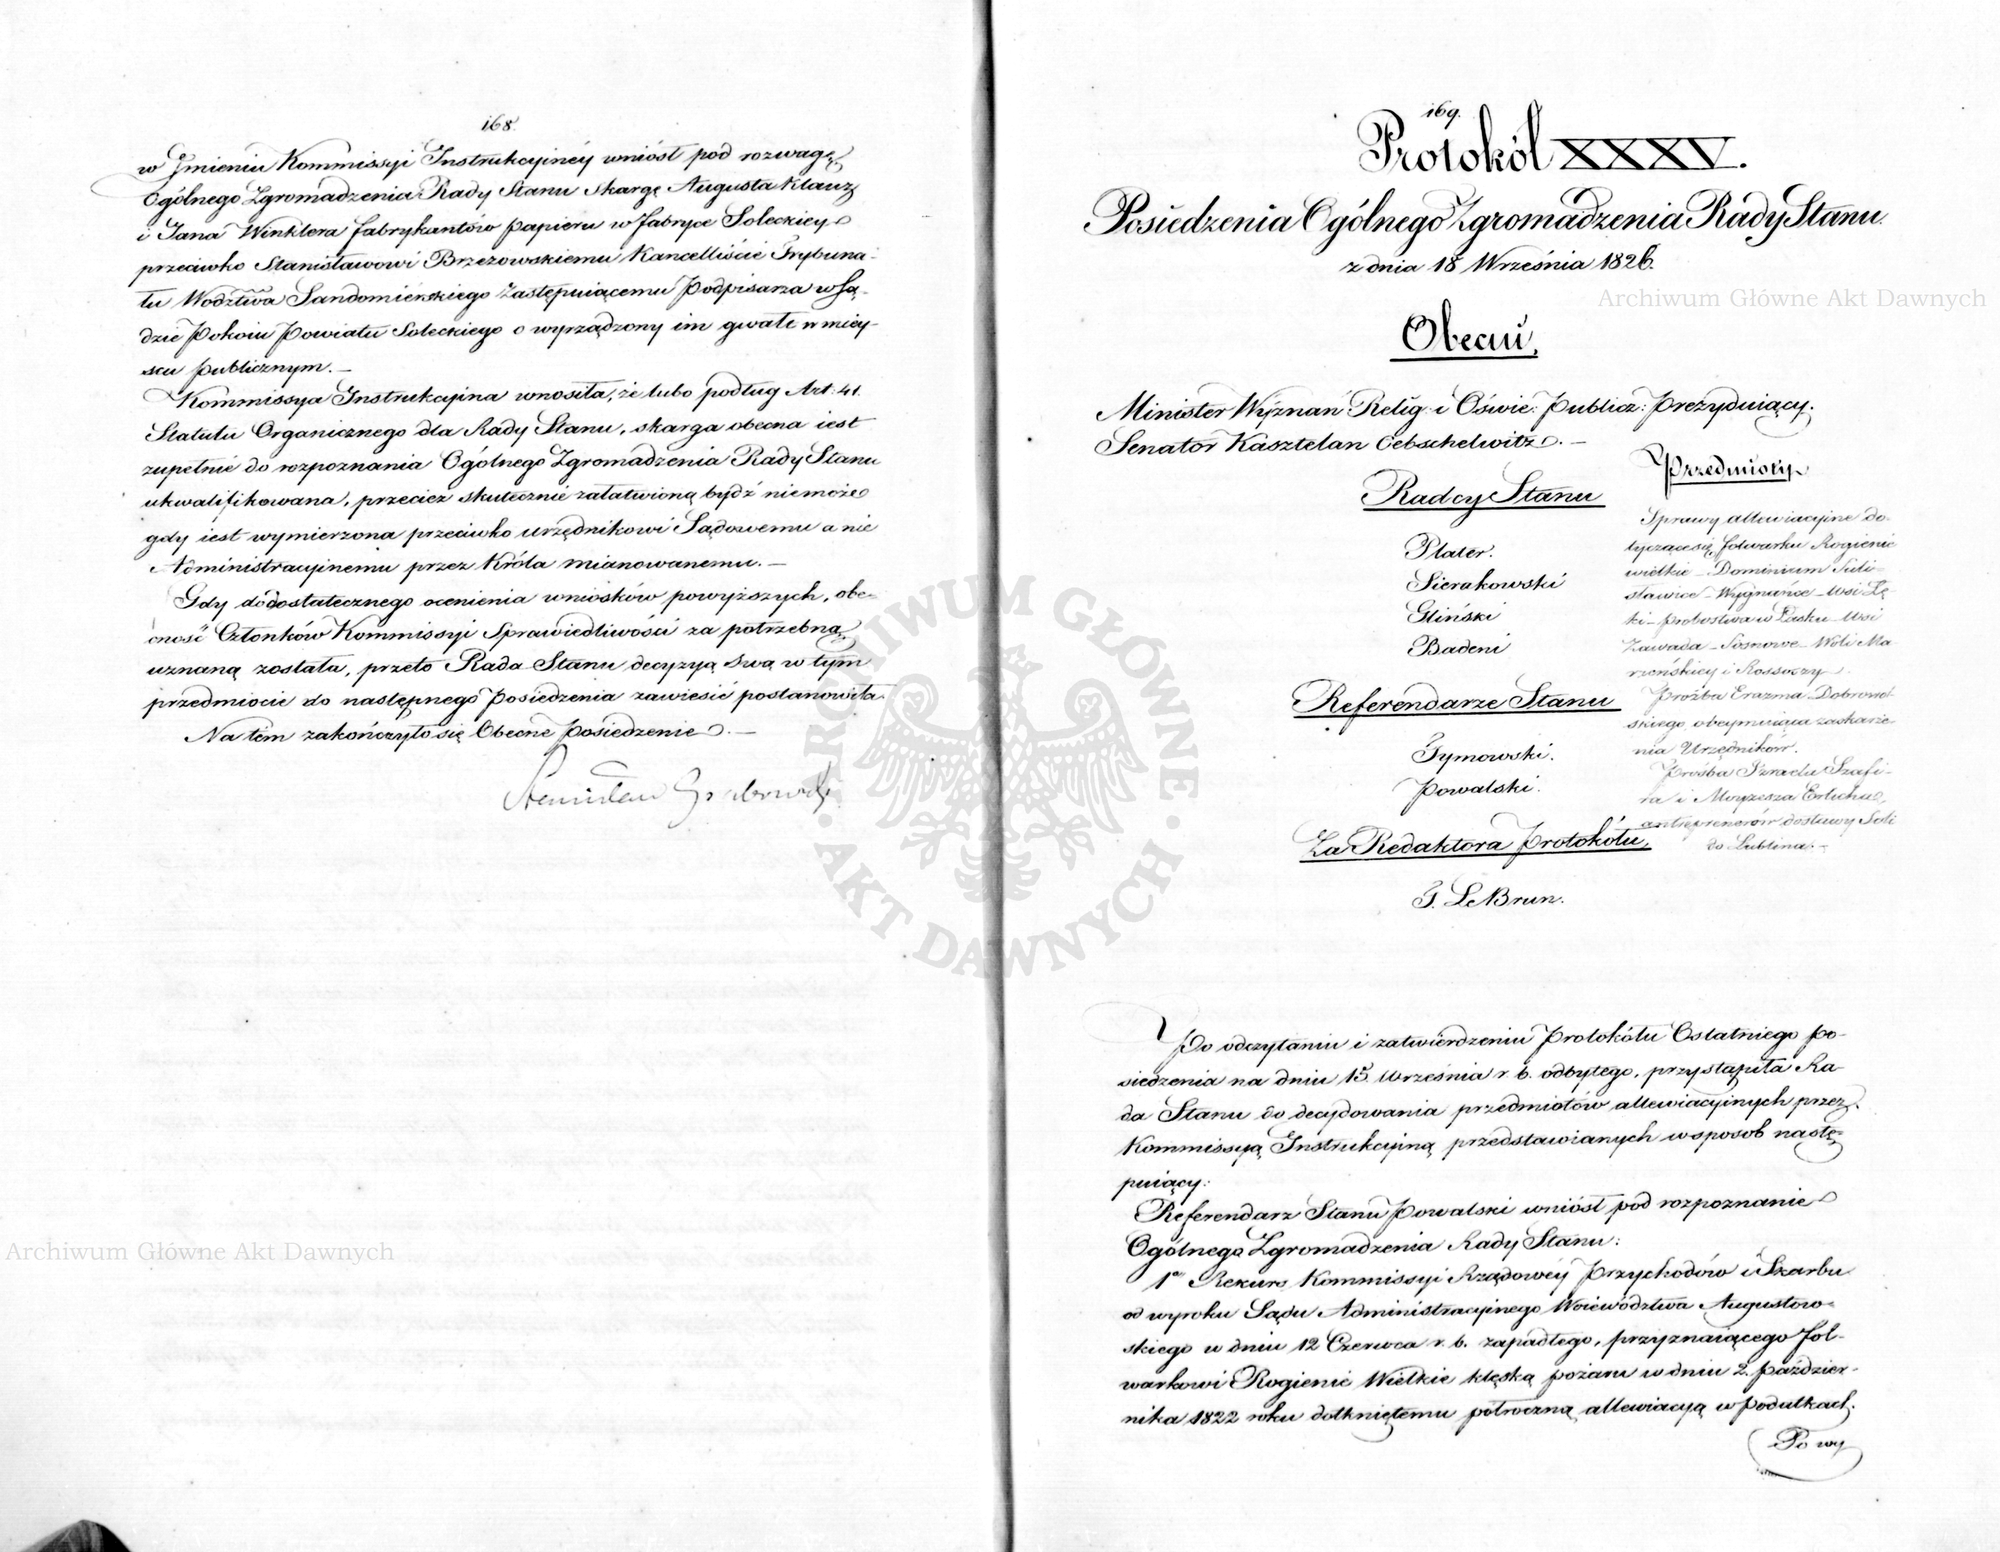 168.
w Jmieniu Kommissyi Instrukcyinéy wniósł pod rozwagę
Ogólnego Zgromadzenia Rady Stanu skargę Augusta Klauz
i Jana Winklera fabrykantów papieru w fabryce Soleckiey
przeciwko Stanisławowi Brzezowskiemu Kancelliście Trybuna-
łu Wodztwa Sandomierskiego zastępuiącemu Podpisarza w Są-
dzie Pokoiu Powiatu Soleckiego o wyrządzony im gwałt w miey-
scu publicznym. —
Kommissya Instrukcyina wnosiła, że lubo podług Art: 41.
Statutu Organicznego dla Rady Stanu, skarga obecna iest
zupełnie do rozpoznania Ogólnego Zgromadzenia Rady Stanu
ukwalifikowana, przecież skutecznie załatwioną bydź nie może
gdy iest wymierzona przeciwko urzędnikowi Sądowemu a nie
Administracyinemu przez Króla mianowanemu. —
Gdy do dostatecznego ocenienia wniosków powyższych, obe-
cność Członków Kommissyi Sprawiedliwości za potrzebną
uznaną została, przeto Rada Stanu decyzyą swą w tym
przedmiocie do następnego Posiedzenia zawiesić postanowiła.
Na tém zakończyło się Obecne Posiedzenie. —
Stanisław Grabowski
169.
Protokół XXXV.
Posiedzenia Ogólnego Zgromadzenia Rady Stanu.
z dnia 18 Września 1826.
Obecni,
Minister Wyznań Relig: i Oświe: Publicz: Prezyduiący.
Senator Kasztelan Oebschelwitz. —
Radcy Stanu
Plater.
Sierakowski
Gliński
Badeni
Referendarze Stanu
Tymowski.
Powalski.
Za Redaktora Protokółu,
T. Le Brun.
Przedmioty
Sprawy allewiacyine do-
tyczące się folwarku Rogienie
wielkie – Dominium Suli-
sławice – Wygnańce – wsi Łę-
ki – probostwa w Łasku – wsi
Zawada – Sosnowe – Woli Ma-
rzeńskiey i Rossoszy.
Prośba Erazma Dobrowol-
skiego obeymuiąca zaskarże-
nia Urzędników.
Prośba Izraela Szafi-
ra i Moyzesza Erlicha,
antreprenerów dostawy Soli
do Lublina. —
Po odczytaniu i zatwierdzeniu Protokółu Ostatniego po-
siedzenia na dniu 15 Września r. b. odbytego, przystąpiła Ra-
da Stanu do decydowania przedmiotów allewiacyinych przez
Kommissyą Instrukcyiną przedstawianych w sposób nastę-
puiący:
Referendarz Stanu Powalski wniósł pod rozpoznanie
Ogólnego Zgromadzenia Rady Stanu:
1o Rekurs Kommissyi Rządowéy Przychodów i Skarbu
od wyroku Sądu Administracyinego Woiewództwa Augustow-
skiego w dniu 12 Czerwca r. b. zapadłego, przyznaiącego fol-
warkowi Rogienie Wielkie klęską pożaru w dniu 2 Paździer-
nika 1822 roku dotkniętemu półroczną allewiacyą w podatkach.
Po wy
Archiwum Główne Akt Dawnych
Archiwum Główne Akt Dawnych
ARCHIWUM GŁÓWNE
AKT DAWNYCH